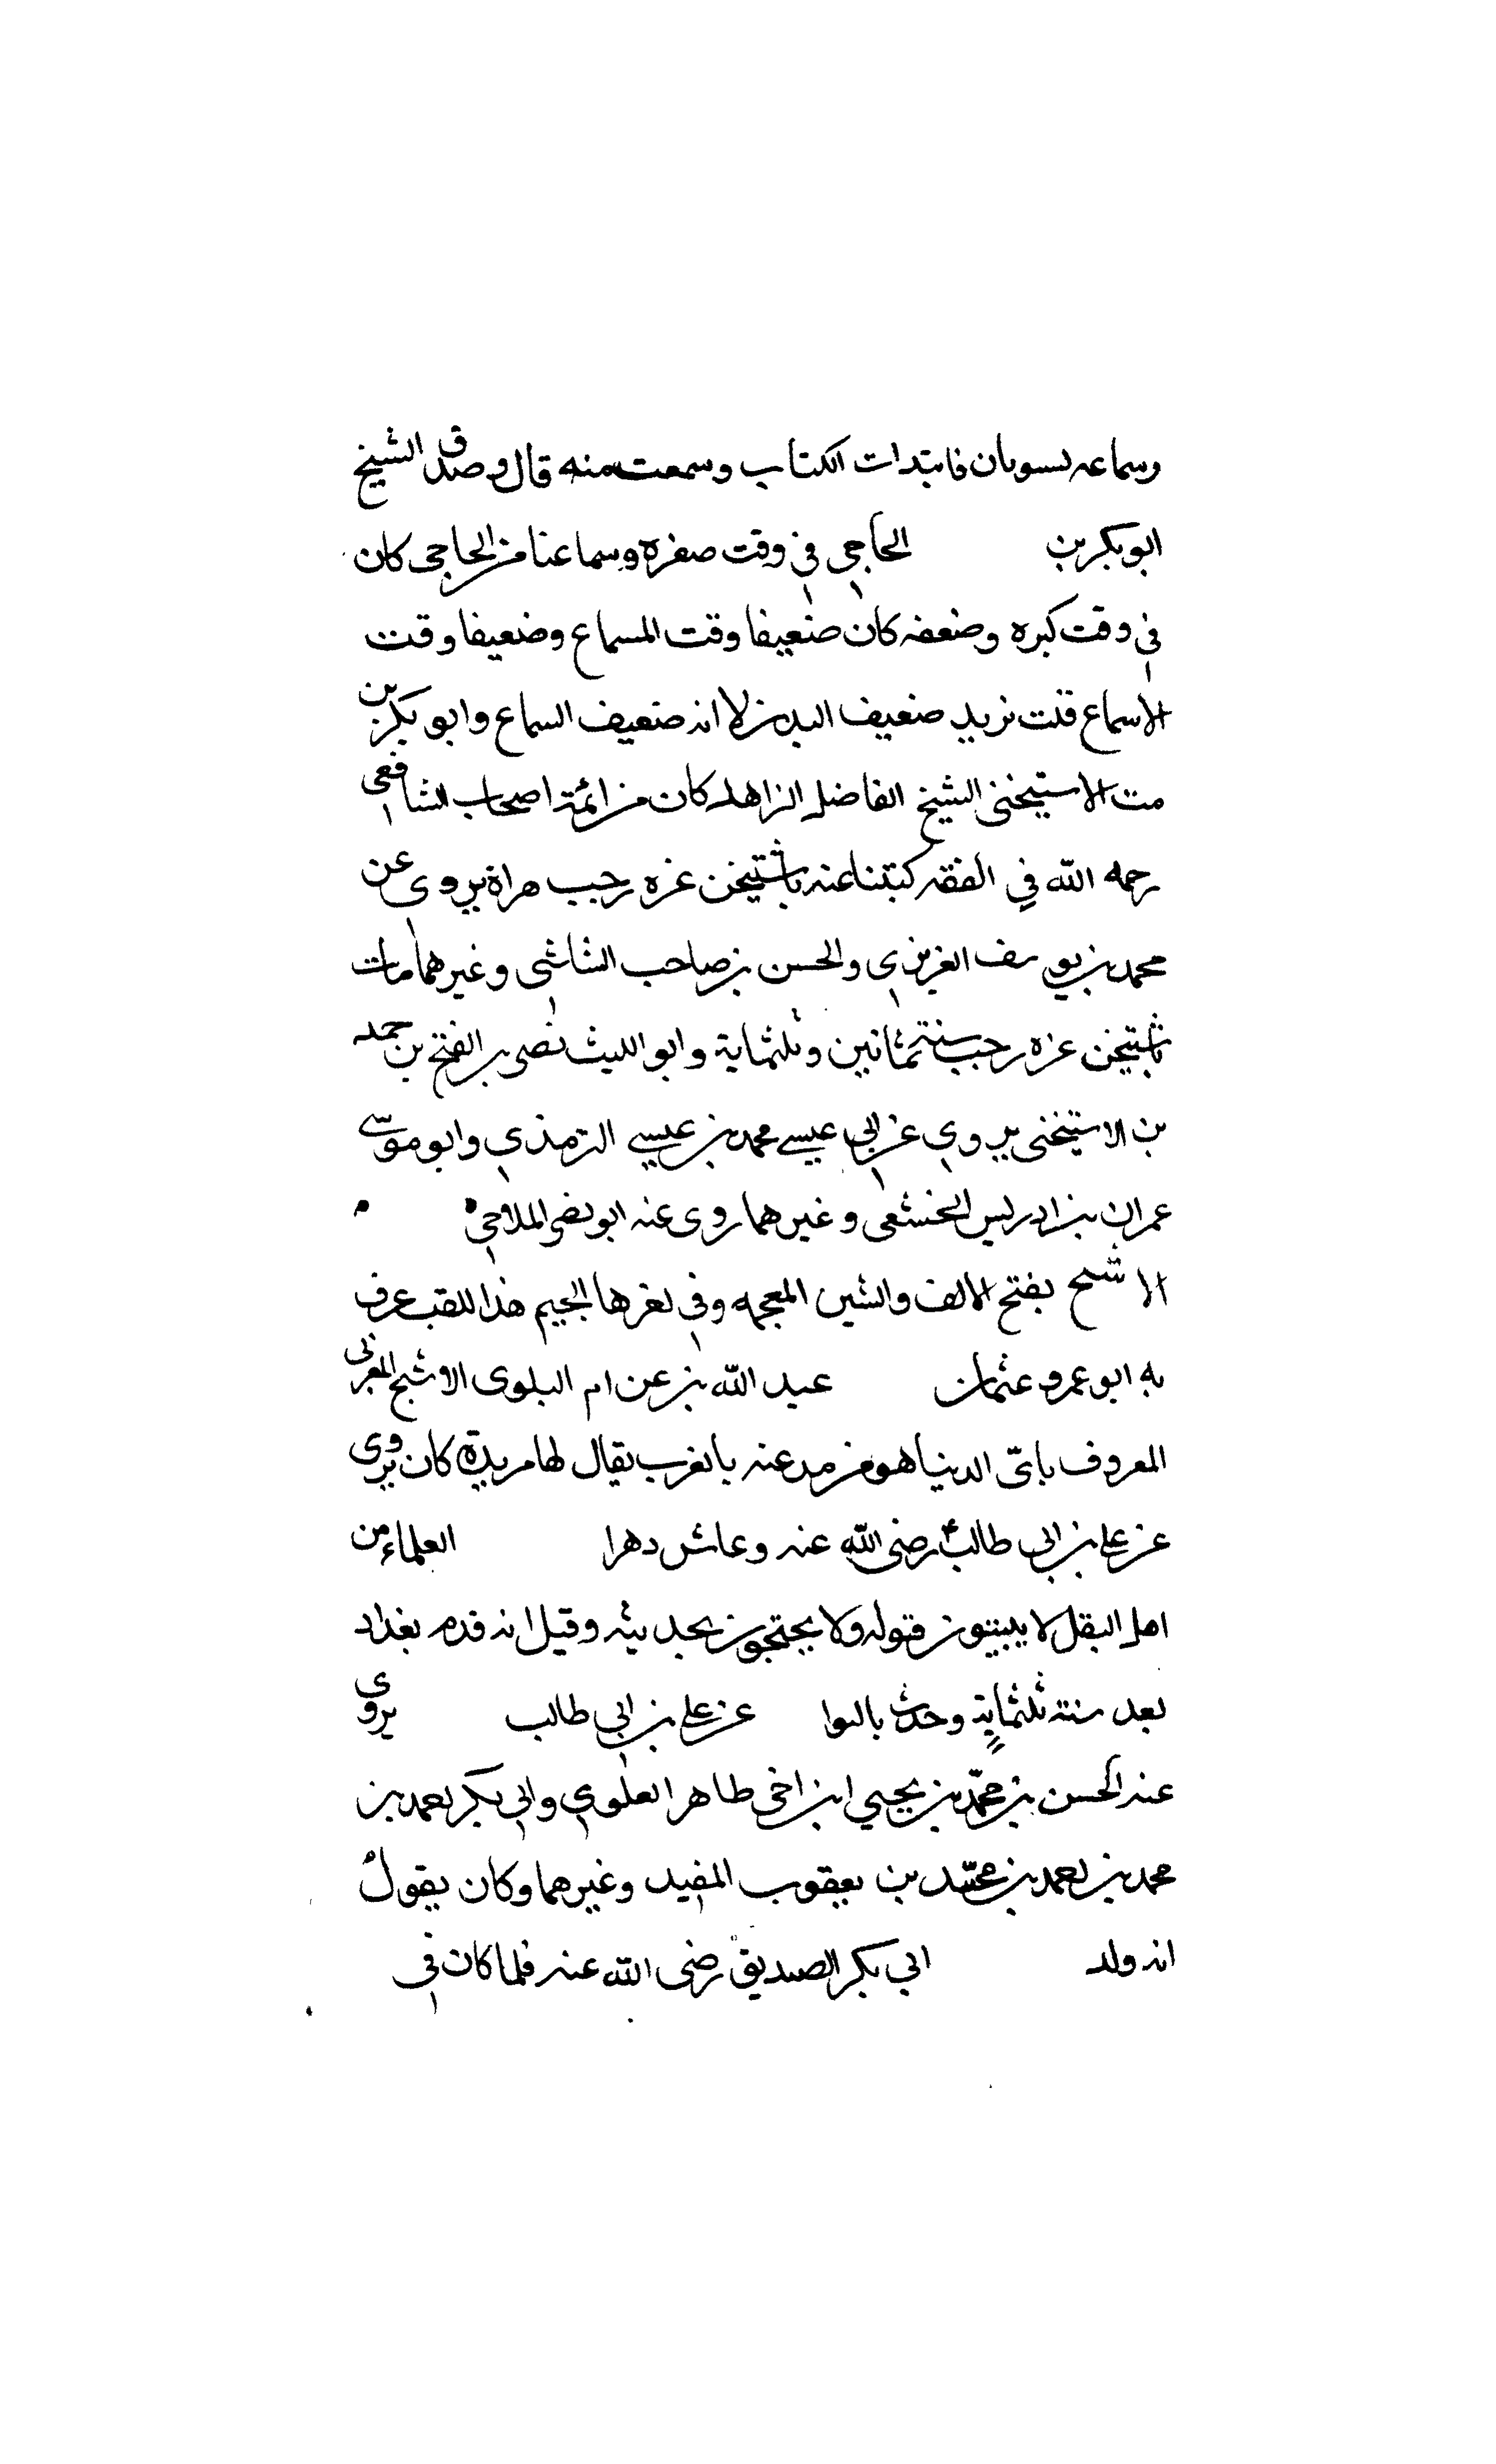 وسماعه يسويان فابتدات الكتاب وسمعت منه قال وصدق الشيخ
ابو بكر بن الحاجي في وقت صغره وسماعنا من الحاجي كان
في وقت كبره وضعفه كان ضعيفا وقت السماع وضعيفا وقت
الاسماع قلت نريد ضعيف البدن لا انه ضعيف السماع وابو بكر بن
مت الاستيخني الشيخ الفاضل الزاهد كان من ائمة اصحاب الشافعي
رحمه الله في الفقه كتبنا عنه باشتيخن غزه رجب هراة يروي عن
محمد بن يوسف الغريزي والحسن بن صاحب الشاشي وغيرهما مات
باشتيخن غزه رجب سنة ثمانين وثلثماية وابو الليث نصر بن الفتح بن حمد
بن الاشتيخني يروي عن ابي عيسي محمد بن عيسي الترمذي وابو موسي
عمران بن ادريس الخشعمي وغيرهما روي عنه ابو نصر الملاحمي
الاشج بفتح الالف والشين المعجمه وفي لغرها الجيم هذا اللقب عرف
به ابو عمرو عثمان عبد الله بن عن ام البلوي الاشج المغربي
المعروف بابي الدنيا هو من مدعنه بالغرب يقال لها مريدة كان يروي
عن علي بن ابي طالب رضي الله عنه وعاش دهرا العلماء من
اهل النقل لا يثبتون قوله ولا يحتجون بحديثه وقيل انه قدم بغداد
بعد سنة ثلثماية وحدث بالبوا عن علي بن ابي طالب يروي
عنه الحسن بن محمد بن يحيي ابن اخي طاهر العلوي وابي بكر بعمد بن
محمد بن بعمد بن محمد بن يعقوب المفيد وغيرهما وكان يقول
انه ولد ابي بكر الصديق رضي الله عنه فلما كان في